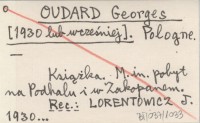 OUDARD Georges
[1930 lub wcześniej]. Pologne.
—
Książka. M.in. pobyt
na Podhalu i w Zakopanem.
Rec.: LORENTOWICZ J.
1930...